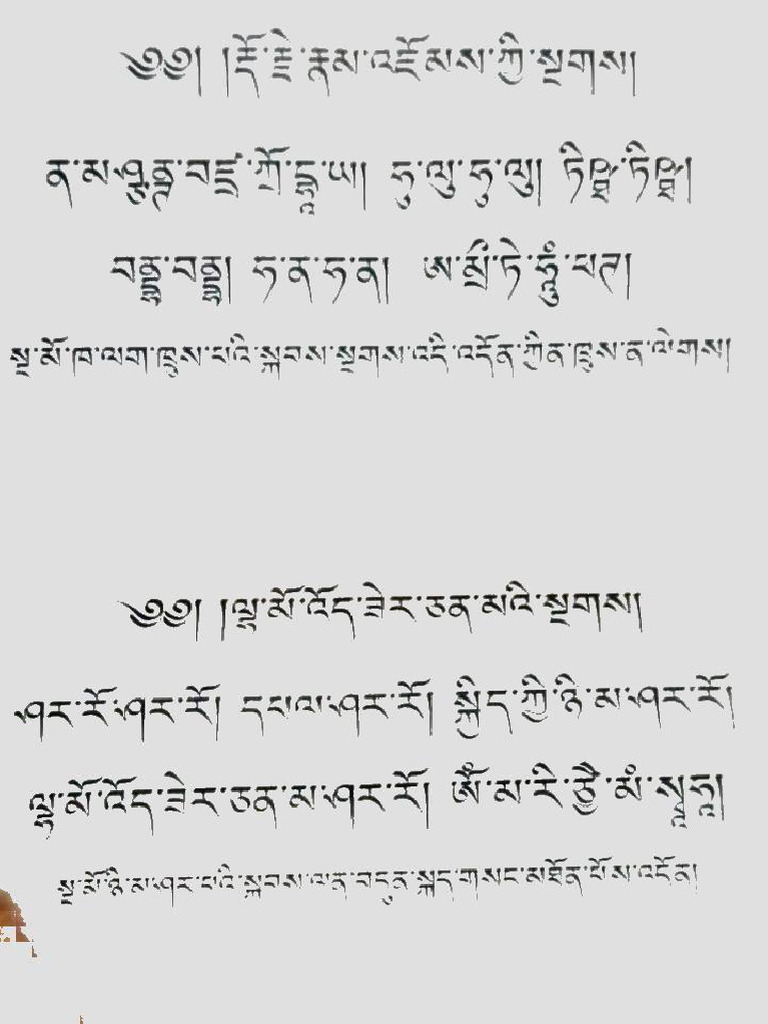 ༄༅། །རྡོ་རྗེ་རྣམ་འཇོམས་ཀྱི་སྔགས།
ན་མ་ཤྩཎྜ་བཛྲ་ཀྲོ་དྷཱ་ཡ། ཧུ་ལུ་ཧུ་ལུ། ཏིཥྛ་ཏིཥྛ།
བནྡྷ་བནྡྷ། ཧ་ན་ཧ་ན། ཨ་མྲྀ་ཏེ་ཧཱུྃ་ཕཊ།
སྔ་མོ་ཁ་ལག་ཁྲུས་པའི་སྐབས་སྔགས་འདི་འདོན་ཀྱིན་ཁྲུས་ན་ལེགས།
༄༅། །ལྷ་མོ་འོད་ཟེར་ཅན་མའི་སྔགས།
ཤར་རོ་ཤར་རོ། དཔལ་ཤར་རོ། སྐྱིད་ཀྱི་ཉི་མ་ཤར་རོ།
ལྷ་མོ་འོད་ཟེར་ཅན་མ་ཤར་རོ། ཨོཾ་མ་རི་ཙྱཻ་མཾ་སྭཱཧཱ།
སྔ་མོ་ཉི་མ་ཤར་པའི་སྐབས་ལན་བདུན་སྐད་གསང་མཐོན་པོས་འདོན།